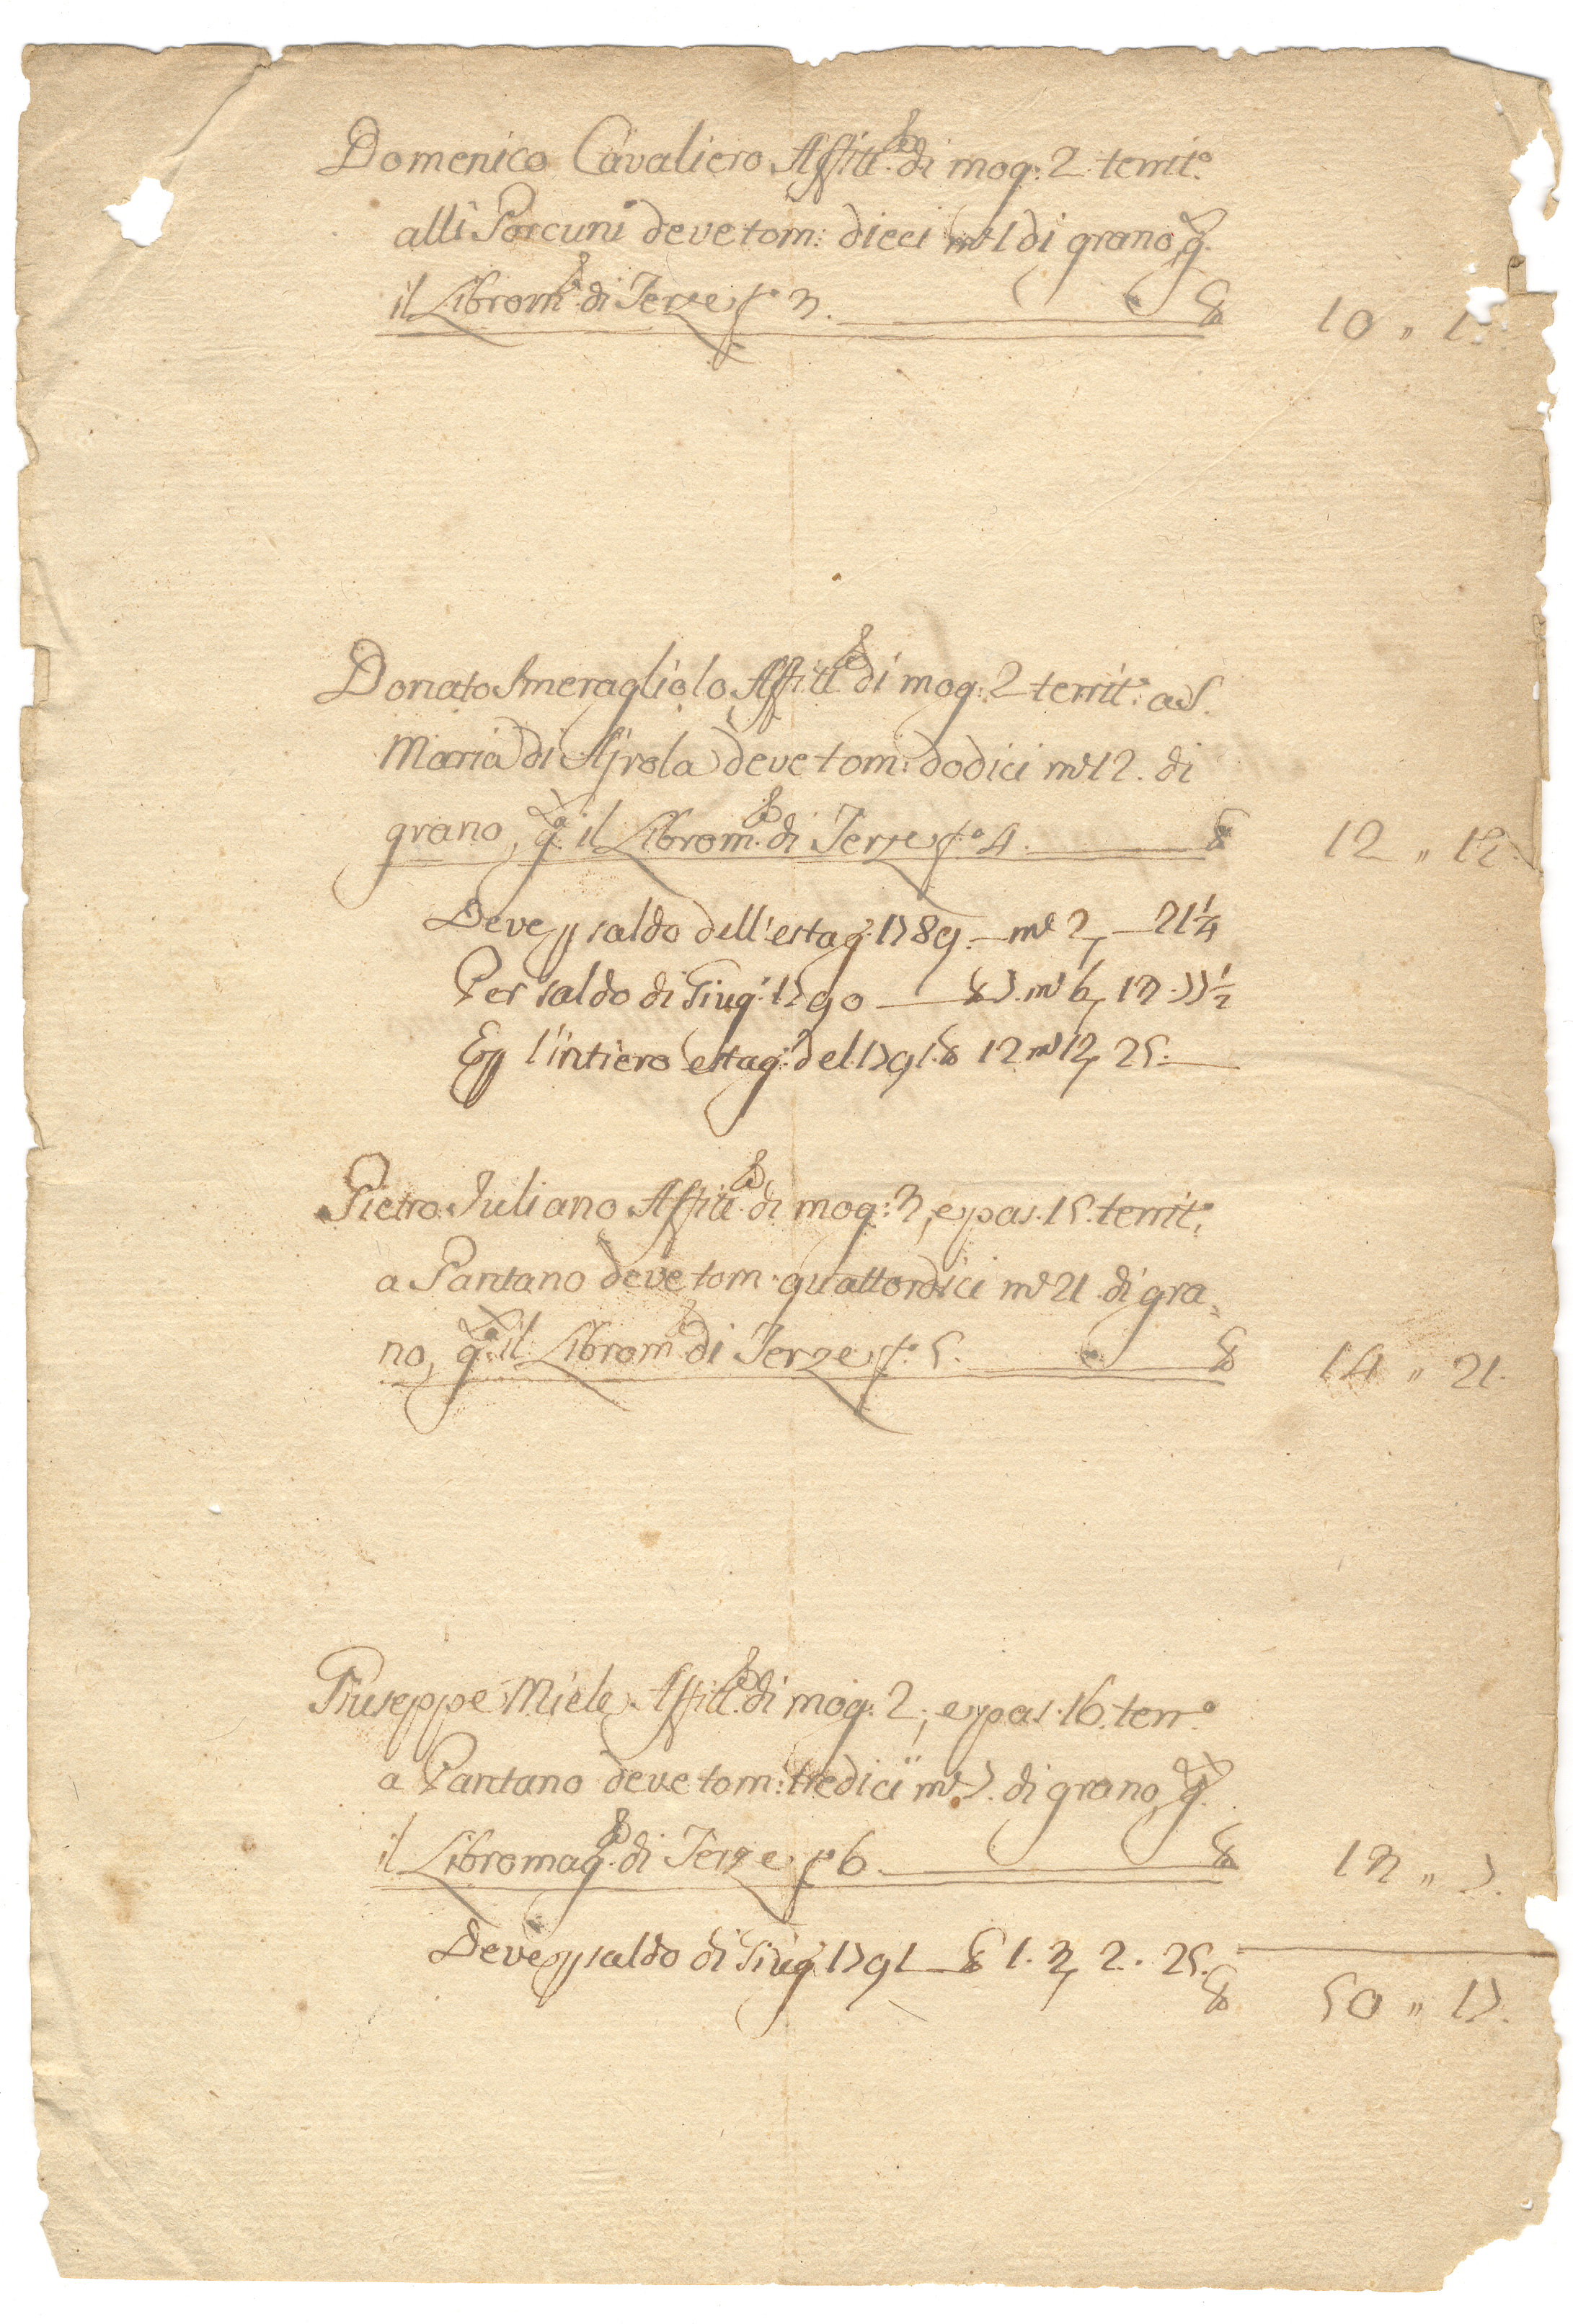 Domenico Cavaliero Affitt.re di mog: 2 territ.o
alli Porcuni deve tom: dieci m.e 1 di grano, q.a
il Libro m.e di Terze f.o 3. 10 „ 1.
Donato Smeragliolo Affitt.re di mog: 2 territ.o a S.
Maria di Ajrola deve tom: dodici m.e 12. di
grano, q.a il Libro m.e di Terze f.o 4. 12 „ 12
Deve p saldo dell'estag. 1789. — m.e 2, — 21 1/4
Per saldo di Giug.o 1790 — 7. m.e 6, 13. 77 1/2
E p l'intiero estag.o del 1791. 12 m.e 12, 25. —
Pietro Iuliano Affitt.re di mog: 3, e pas. 15. territ.o
a Pantano deve tom: quattordici m.e 21. di gra=
no, q.a il Libro m.e di Terze f.o 5. 14 „ 21.
Giuseppe Miele Affitt.re di mog: 2, e pas. 16. terr.o
a Pantano deve tom: tredici m.e 7. di grano, q.a
il Libro mag.re di Terze f.o 6. 13 „ 7.
Deve p saldo di Giug.o 1791 — 1. 3, 2. 25.
50 „ 17.